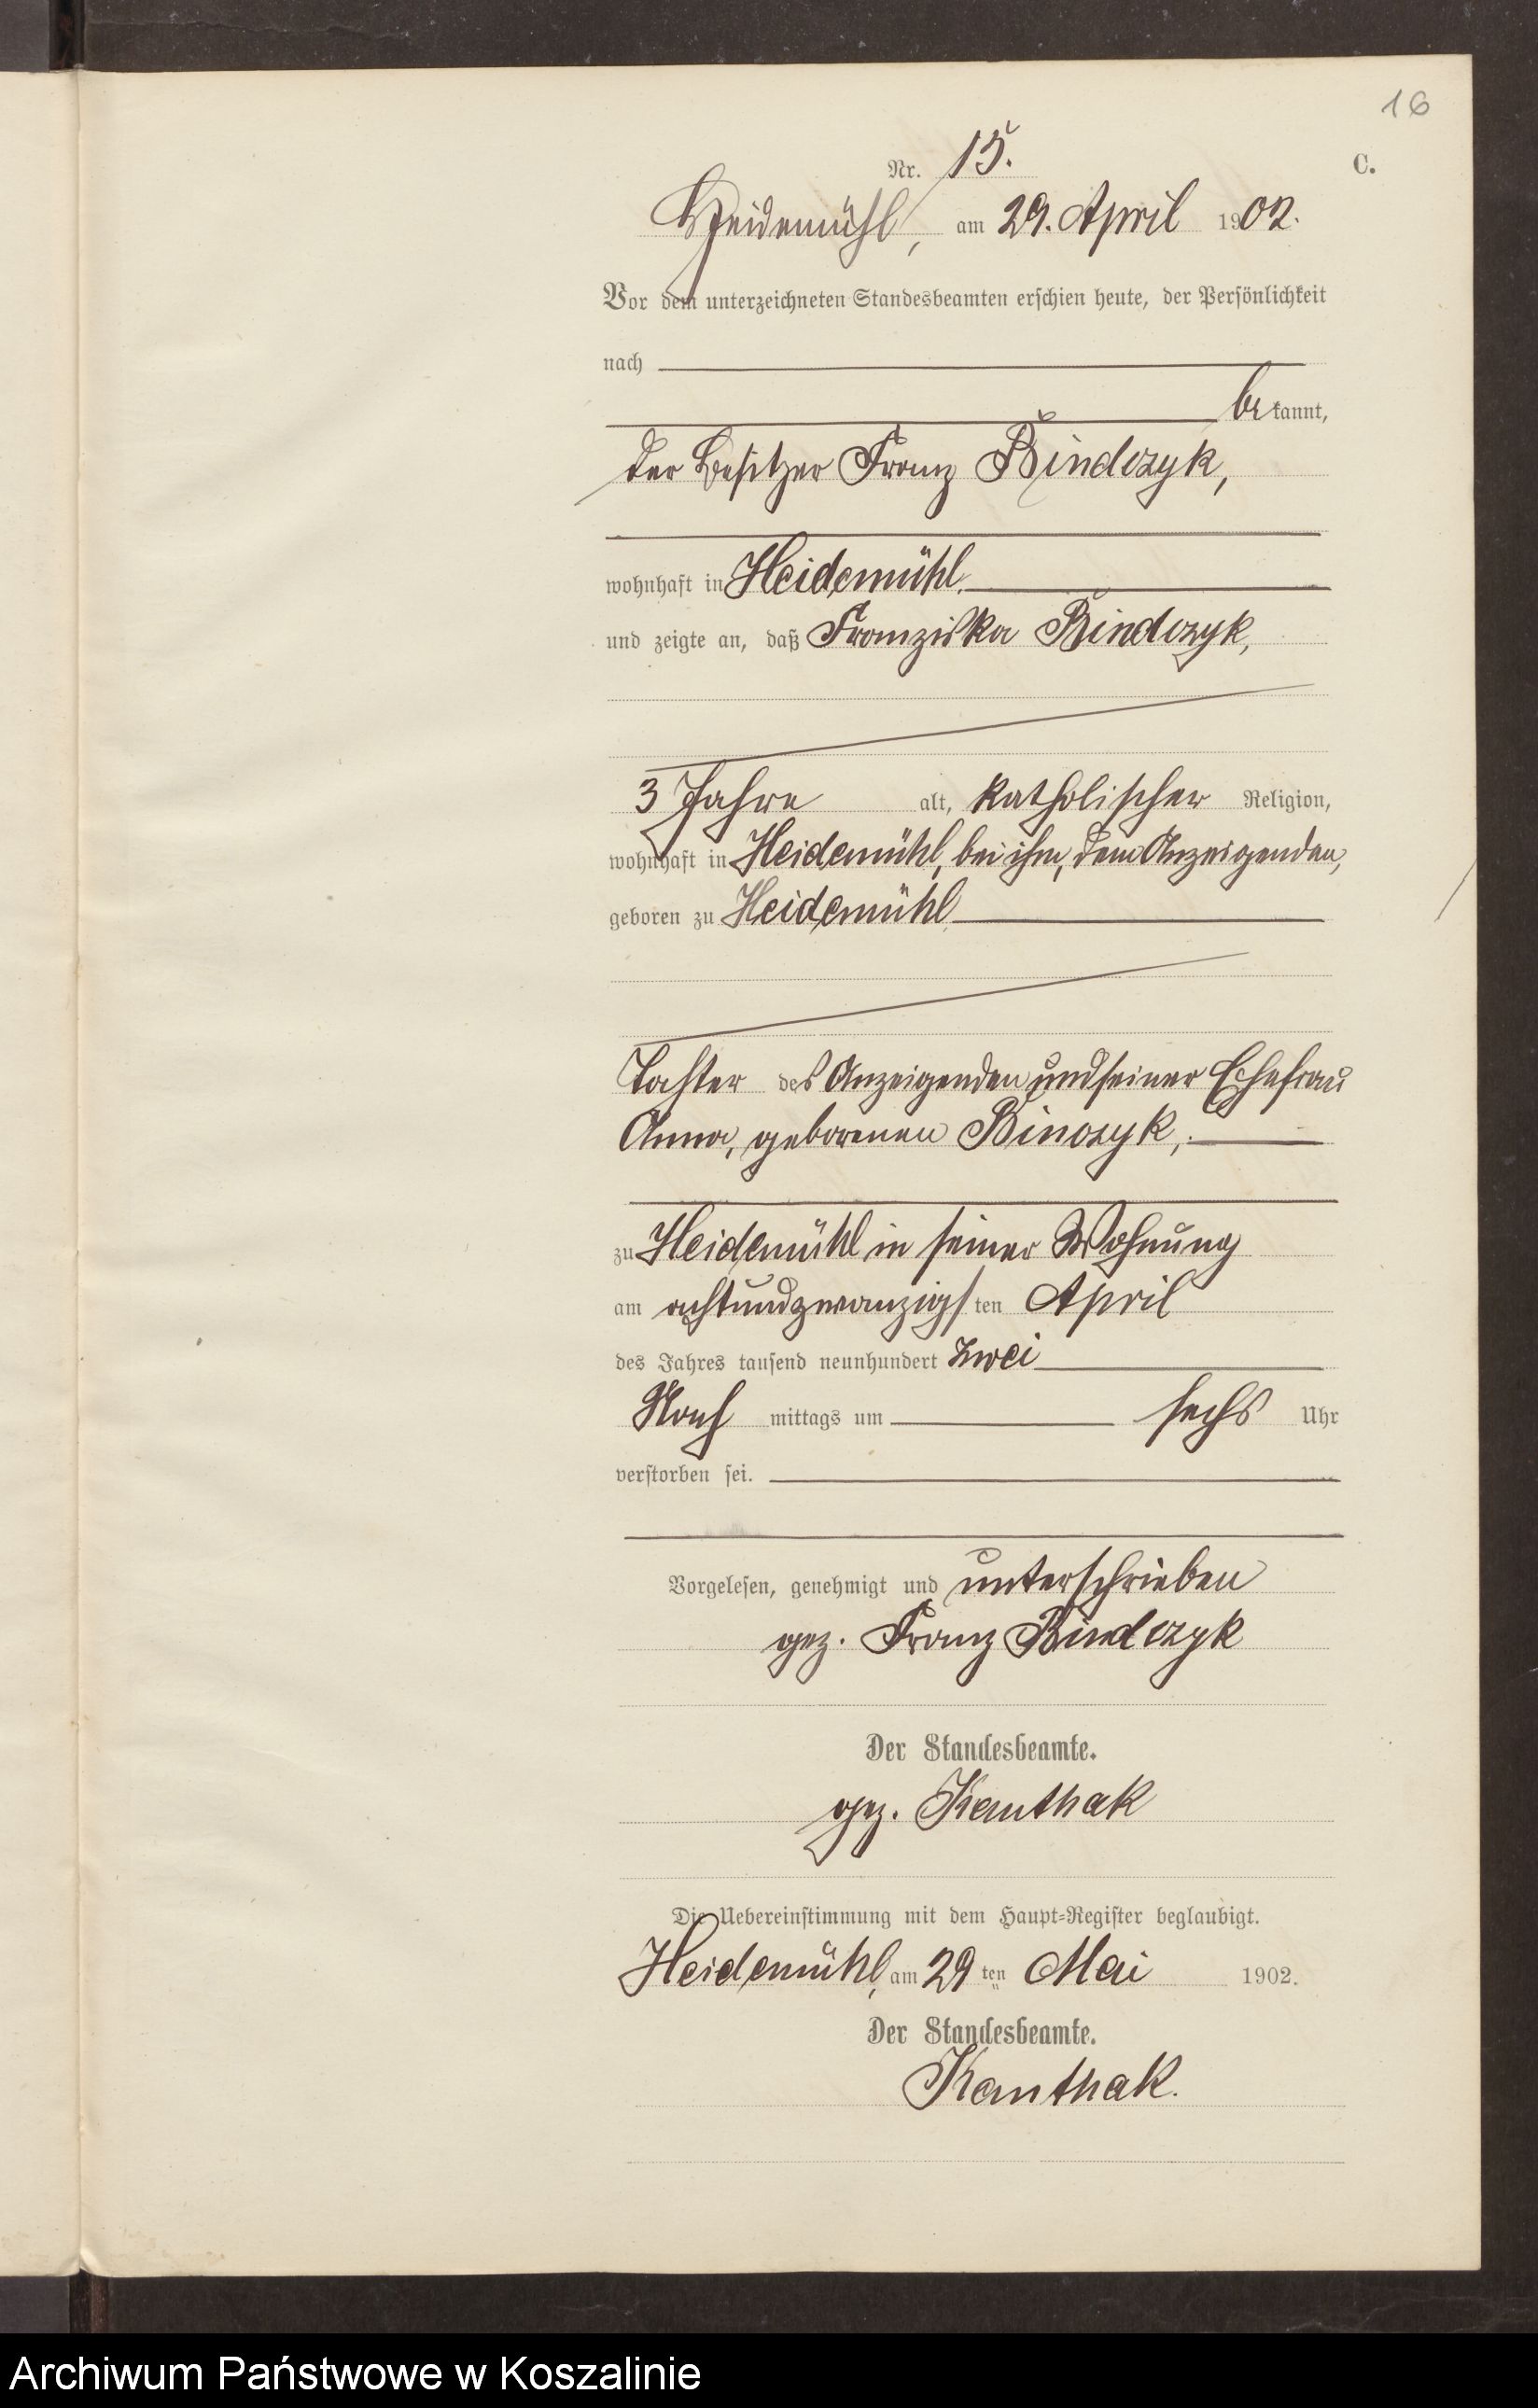 16
C.
Nr. 15.
Heidemühl, am 29. April 1902.
Vor dem unterzeichneten Standesbeamten erschien heute, der Persönlichkeit
nach
bekannt,
der Besitzer Franz Bindczyk,
wohnhaft in Heidemühl
und zeigte an, daß Franziska Bindczyk,
3 Jahre alt, katholischer Religion,
wohnhaft in Heidemühl, bei ihm, dem Anzeigenden,
geboren zu Heidemühl
Tochter des Anzeigenden und seiner Ehefrau
Anna, geborenen
zu Heidemühl in seiner Wohnung
am achtundzwanzigsten April
des Jahres tausend neunhundert zwei
Nachmittags um sechs Uhr
verstorben sei.
Vorgelesen, genehmigt und unterschrieben
gez. Franz Bindczyk
Der Standesbeamte.
gez. Kanthak
Die Uebereinstimmung mit dem Haupt-Register beglaubigt.
Heidemühl, am 29ten Mai 1902.
Der Standesbeamte.
Kanthak.
Archiwum Państwowe w Koszalinie